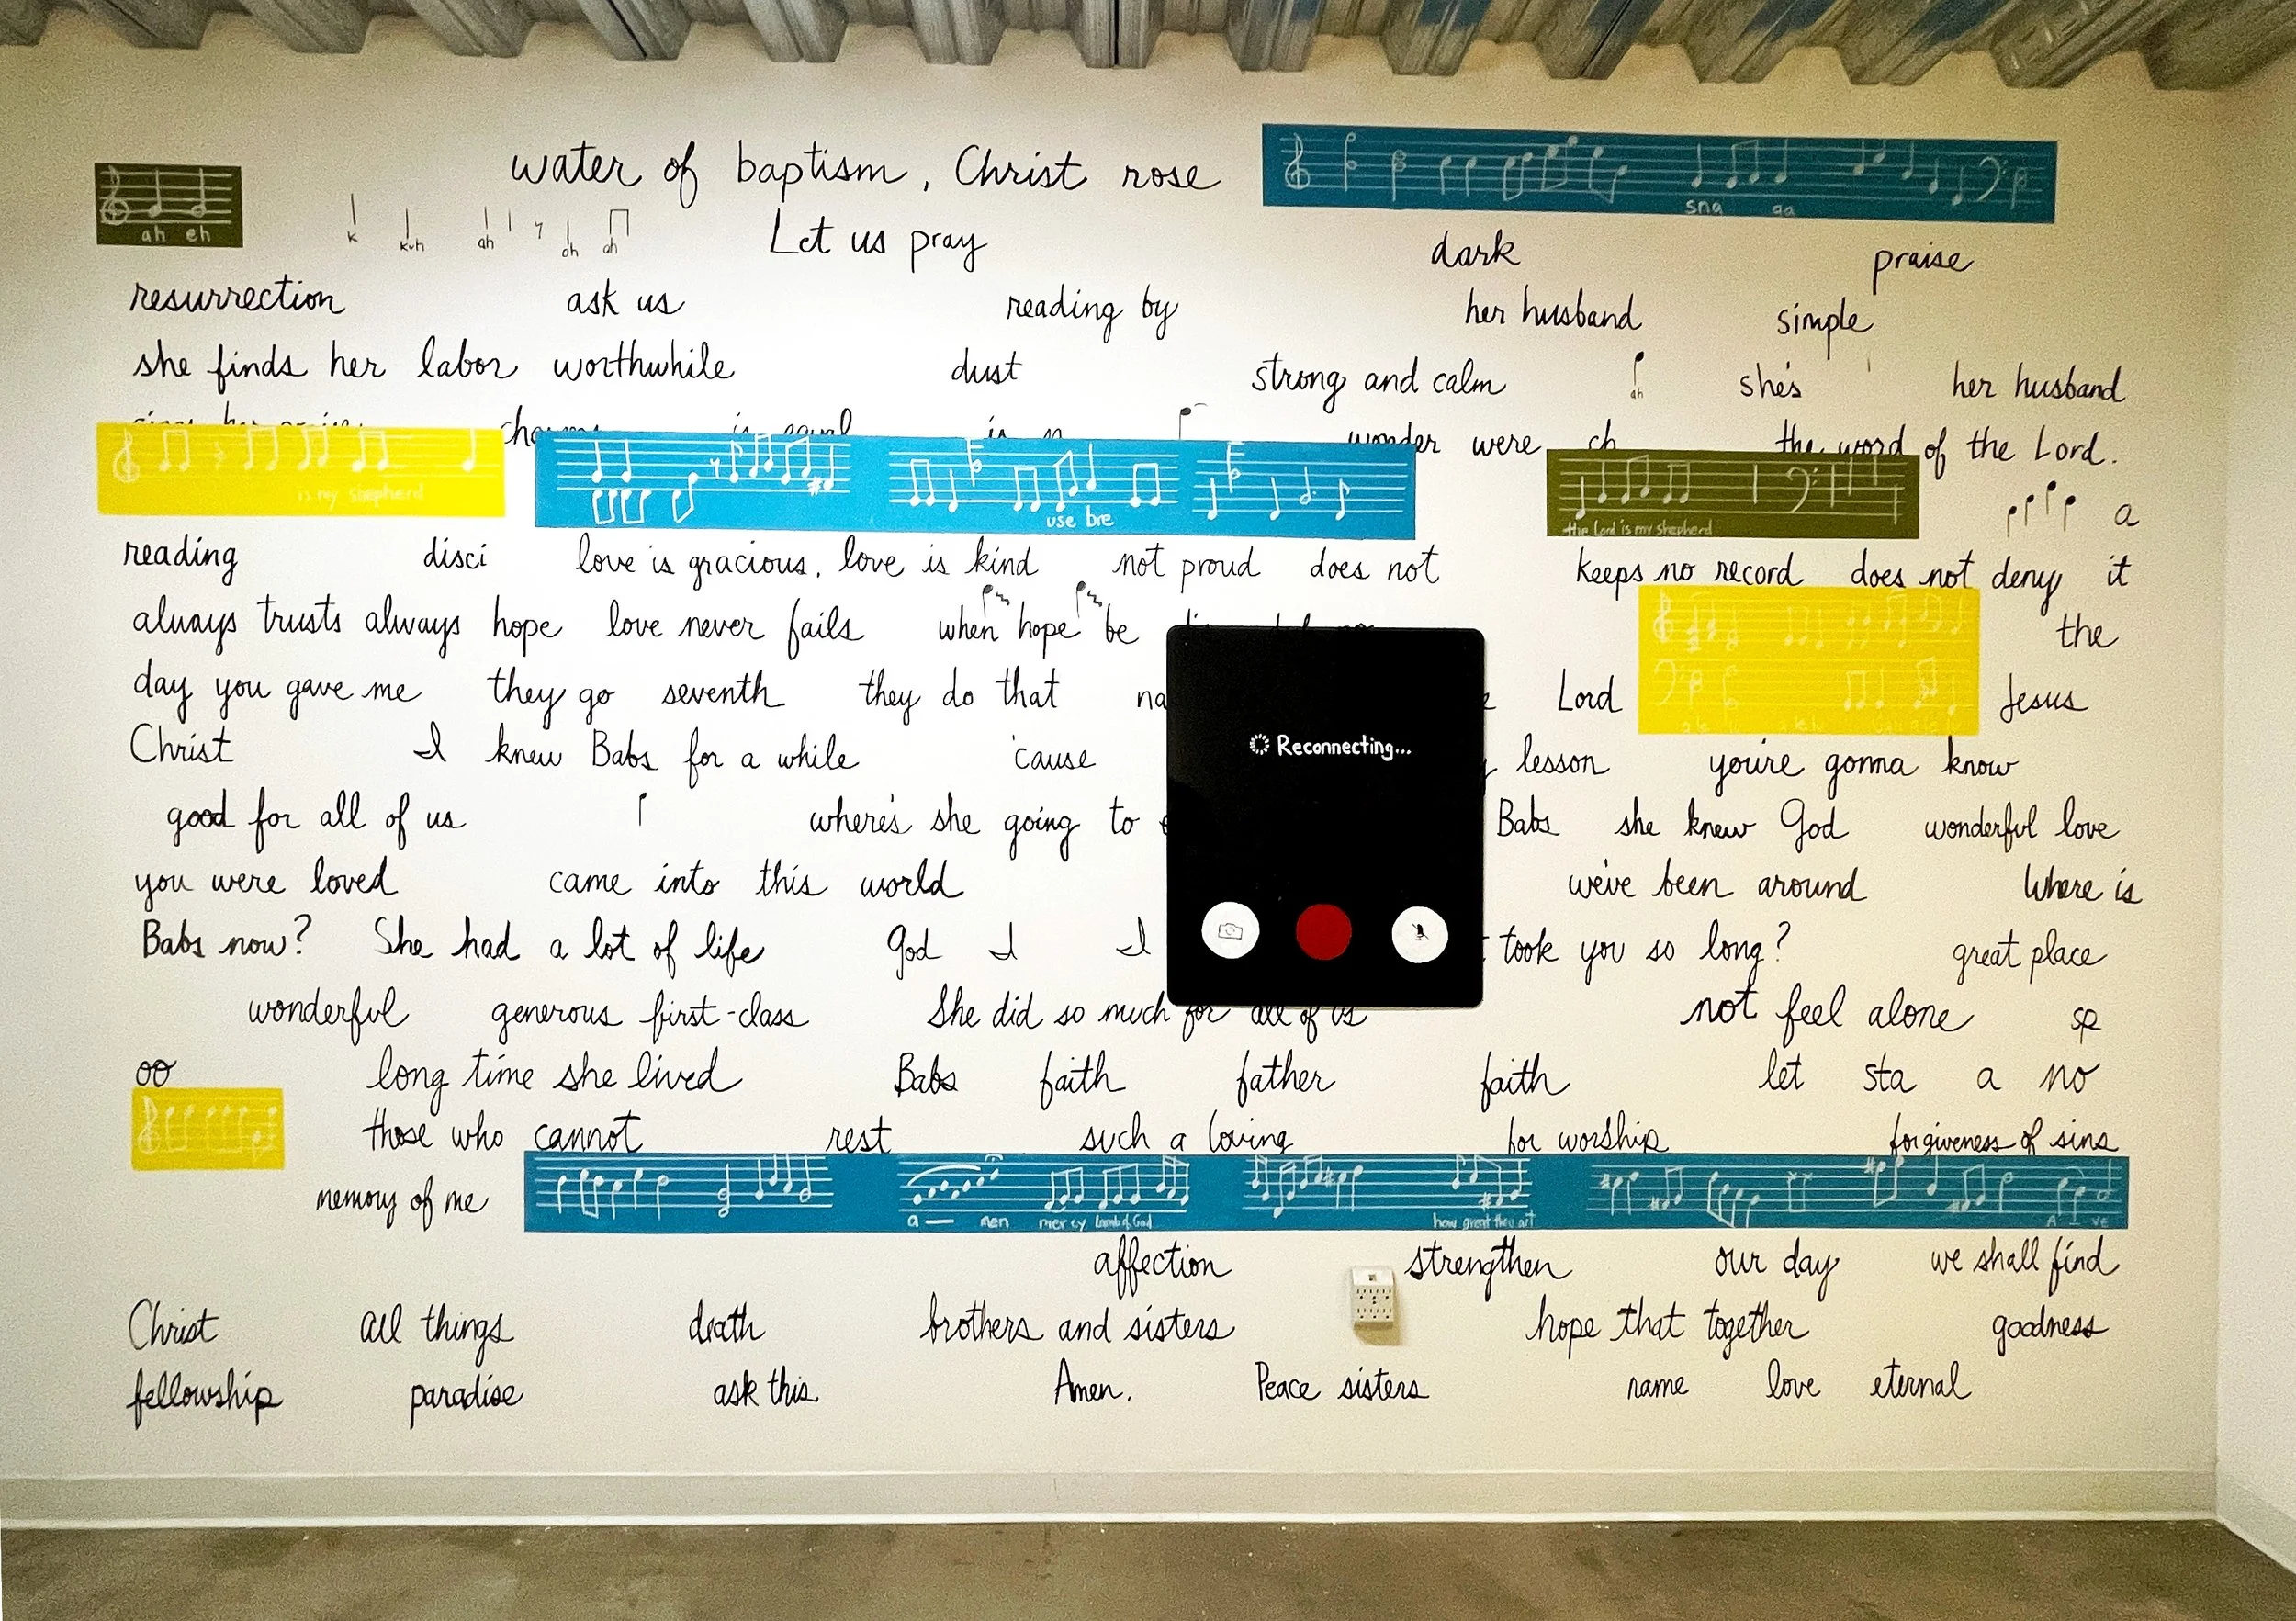 water of baptism, Christ rose
sna ga
ah eh
k kuh ah oh ah
Let us pray dark praise
resurrection ask us reading by her husband simple
she finds her labor worthwhile dust strong and calm ah she's her husband
wonder were ch the word of the Lord.
is my shepherd
use bre
the Lord is my shepherd
a
reading disci love is gracious, love is kind not proud does not keeps no record does not deny it
always trusts always hope love never fails when hope be the
day you gave me they go seventh they do that na Lord Jesus
Christ I knew Babs for a while 'cause lesson you're gonna know
Reconnecting...
good for all of us where's she going to Babs she knew God wonderful love
you were loved came into this world we've been around Where is
Babs now? She had a lot of life God I I took you so long? great place
wonderful generous first-class She did so much for all of us not feel alone sp
oo long time she lived Babs faith father faith let sta a no
those who cannot rest such a loving for worship forgiveness of sins
memory of me
a— men mercy Lamb of God how great thou art A - ve
affection strengthen our day we shall find
Christ all things death brothers and sisters hope that together goodness
fellowship paradise ask this Amen. Peace sisters name love eternal